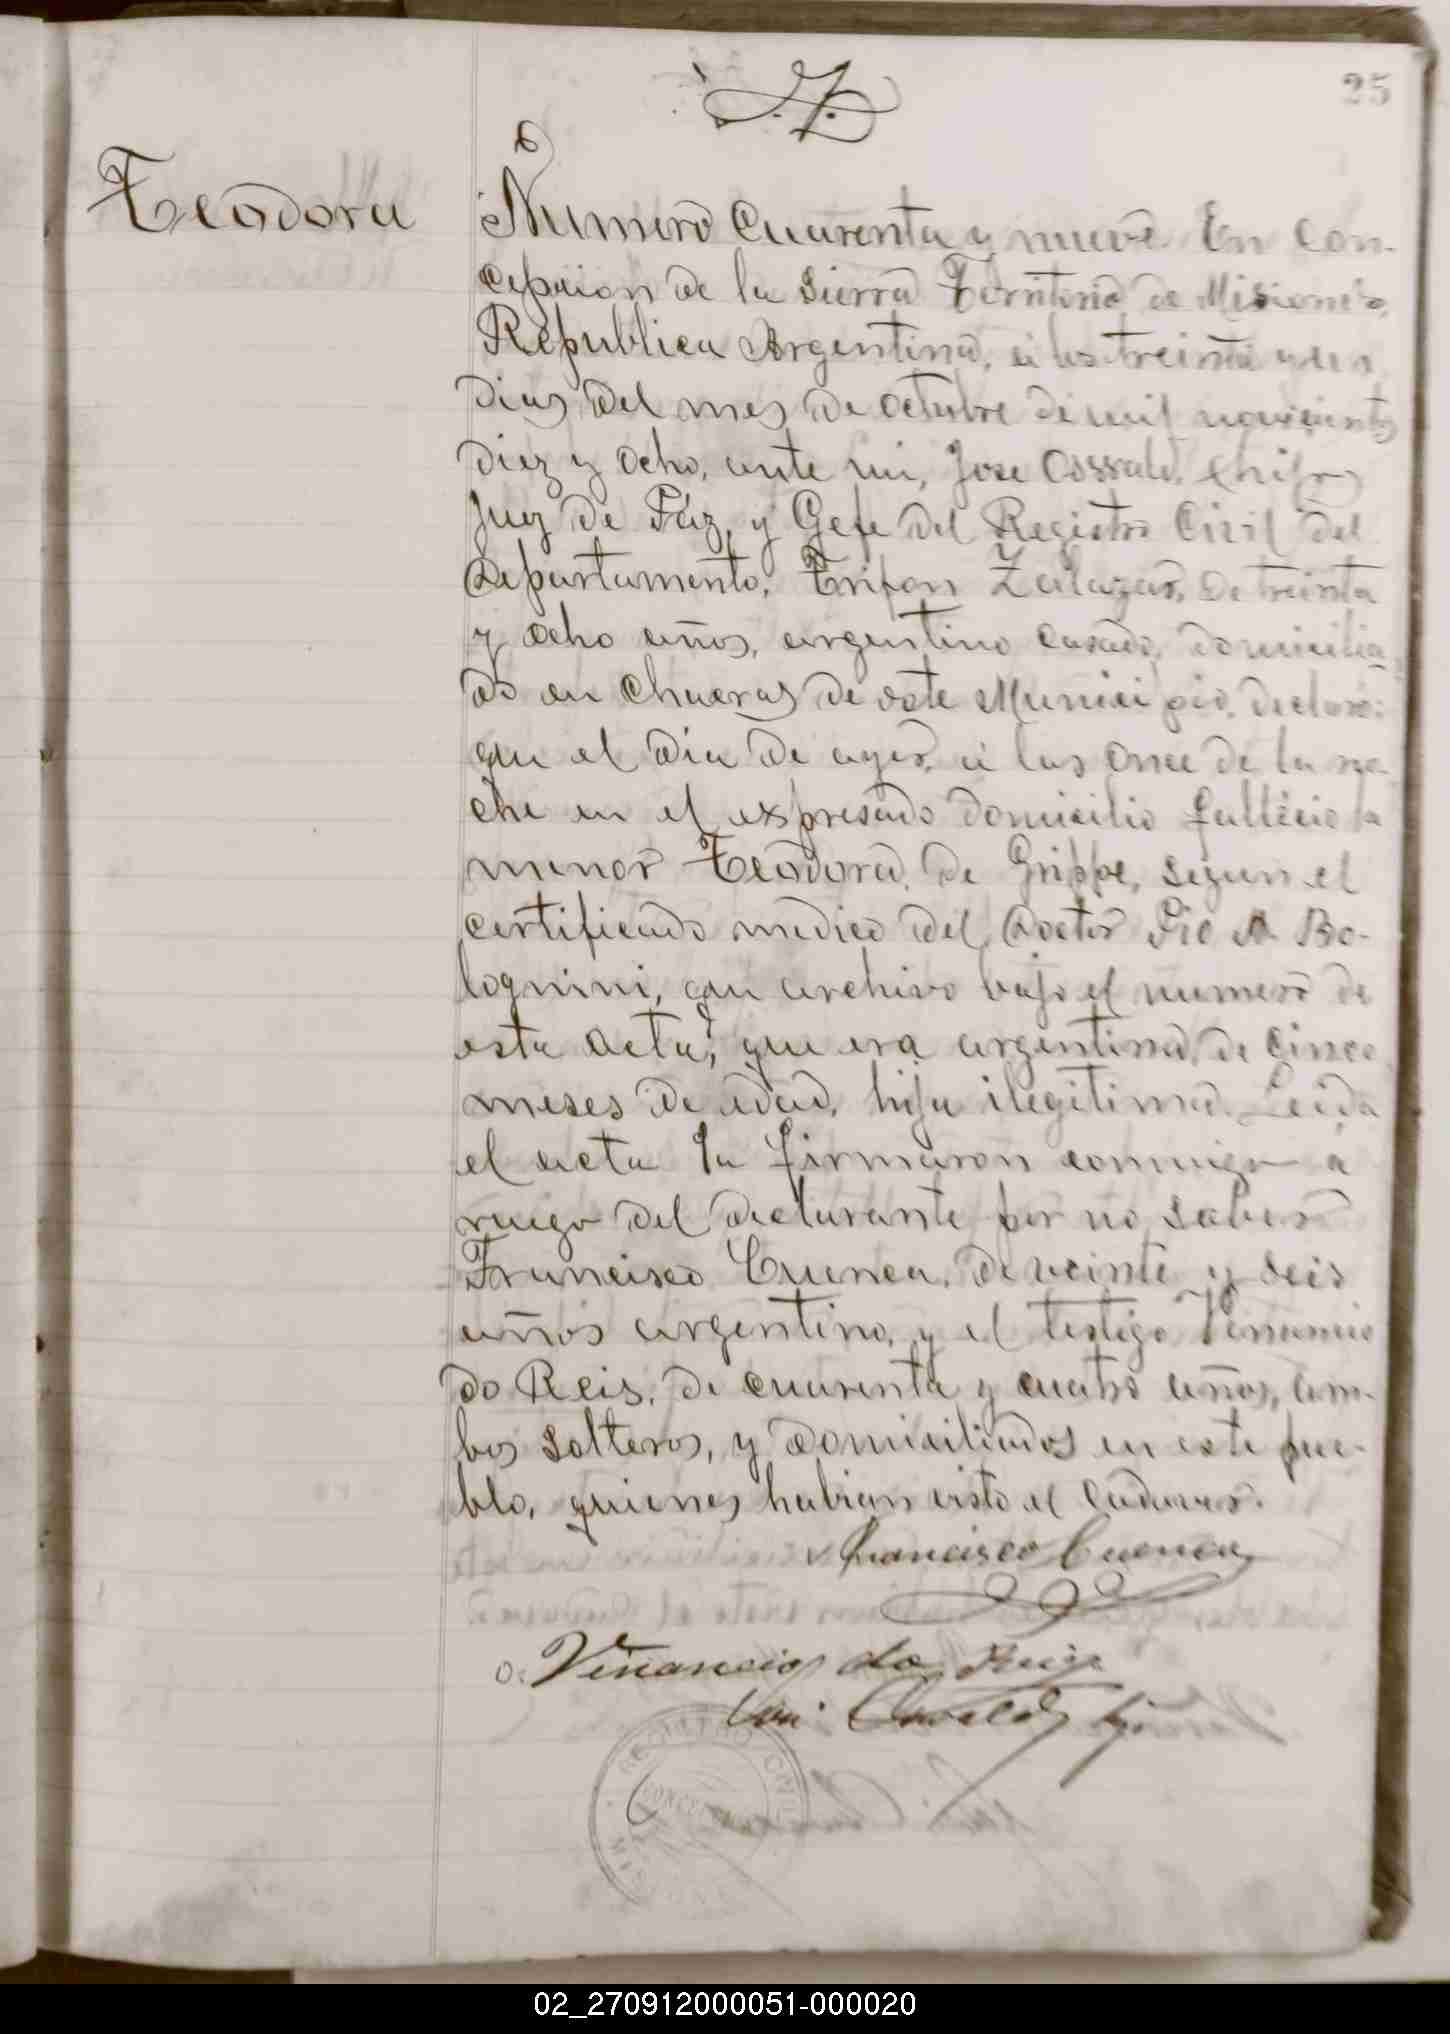 25
Teodora
Numero cuarenta y nueve En Con-
cepcion de la Sierra Territorio de Misiones,
Republica Argentina, á los treinta y un
dias del mes de Octubre de mil novecientos
diez y ocho, ante mi, Jose Osvaldo
Juez de Páz, y Gefe del Registro Civil del
Departamento, Trifon Zalazar, de treinta
y ocho años, argentino casado, domicilia-
do en Chacras de este Municipio, declaró:
que el dia de ayer, á las once de la no-
che en el expresado domicilio fallecio la
menor Teodora, de Grippe, segun el
certificado medico del Doctor Pio A. Bo-
lognini, que archivo bajo el numero de
esta acta; que era argentina, de cinco
meses de edad, hija ilegitima. Leida
el acta la firmaron conmigo á
ruego del declarante por no saber
Francisco Cuenca, de veinte y seis
años argentino, y el testigo Venancio
do Reis, de cuarenta y cuatro años, am-
bos solteros, y domiciliados en este pue-
blo, quienes habian visto el cadaver.
Francisco Cuenca
Venancio do Reis
Osvaldo
REGISTRO CIVIL
CONCEPCION
02_270912000051-000020